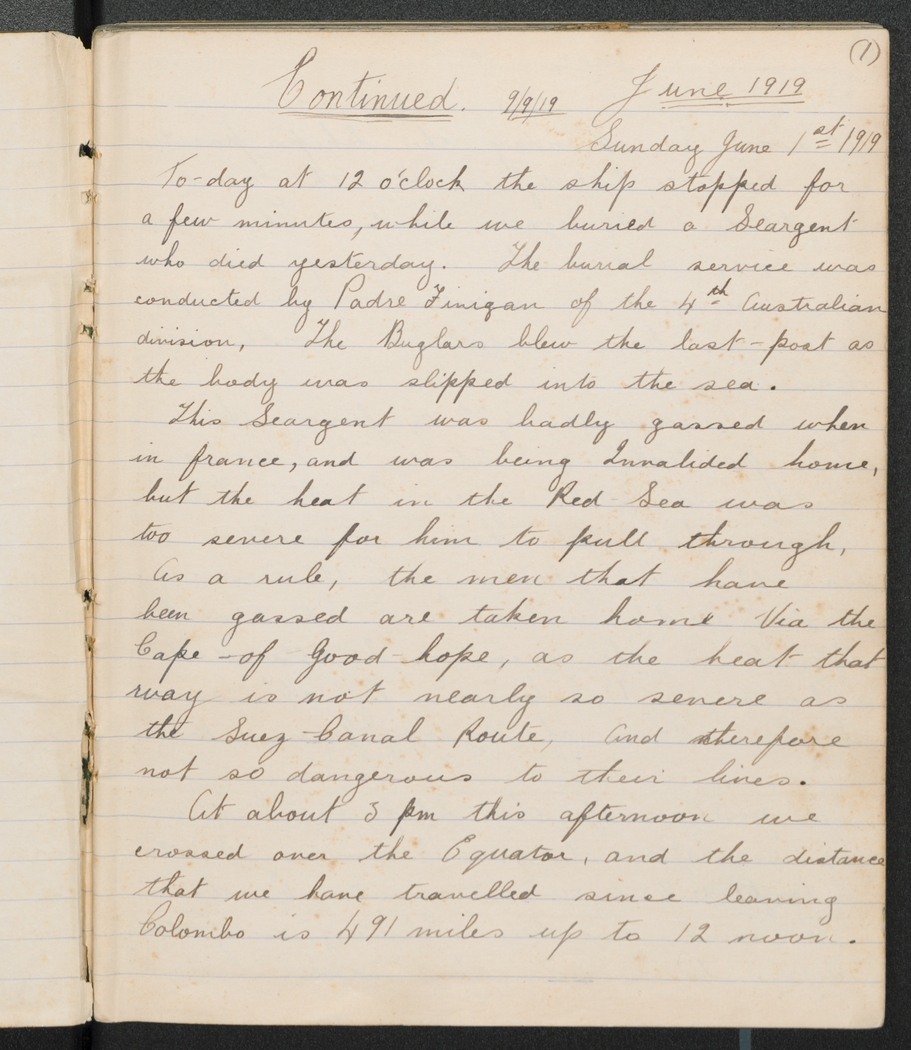 (1)
Continued. 9/9/19 June 1919
Sunday June 1st 1919
To-day at 12 o'clock the ship stopped for
a few minutes, while we buried a Seargent
who died yesterday. The burial service was
conducted by Padre Finigan of the 4th Australian
division, The Buglars blew the last-post as
the body was slipped into the sea.
This Seargent was badly gassed when
in france, and was being Invalided home,
but the heat in the Red Sea was
too severe for him to pull through,
As a rule, the men that have
been gassed are taken home Via the
Cape-of Good-hope, as the heat that
way is not nearly so severe as
the Suez-Canal Route, And therefore
not so dangerous to their lives.
At about 3 pm this afternoon we
crossed over the Equator, and the distance
that we have travelled since leaving
Colombo is 491 miles up to 12 noon.